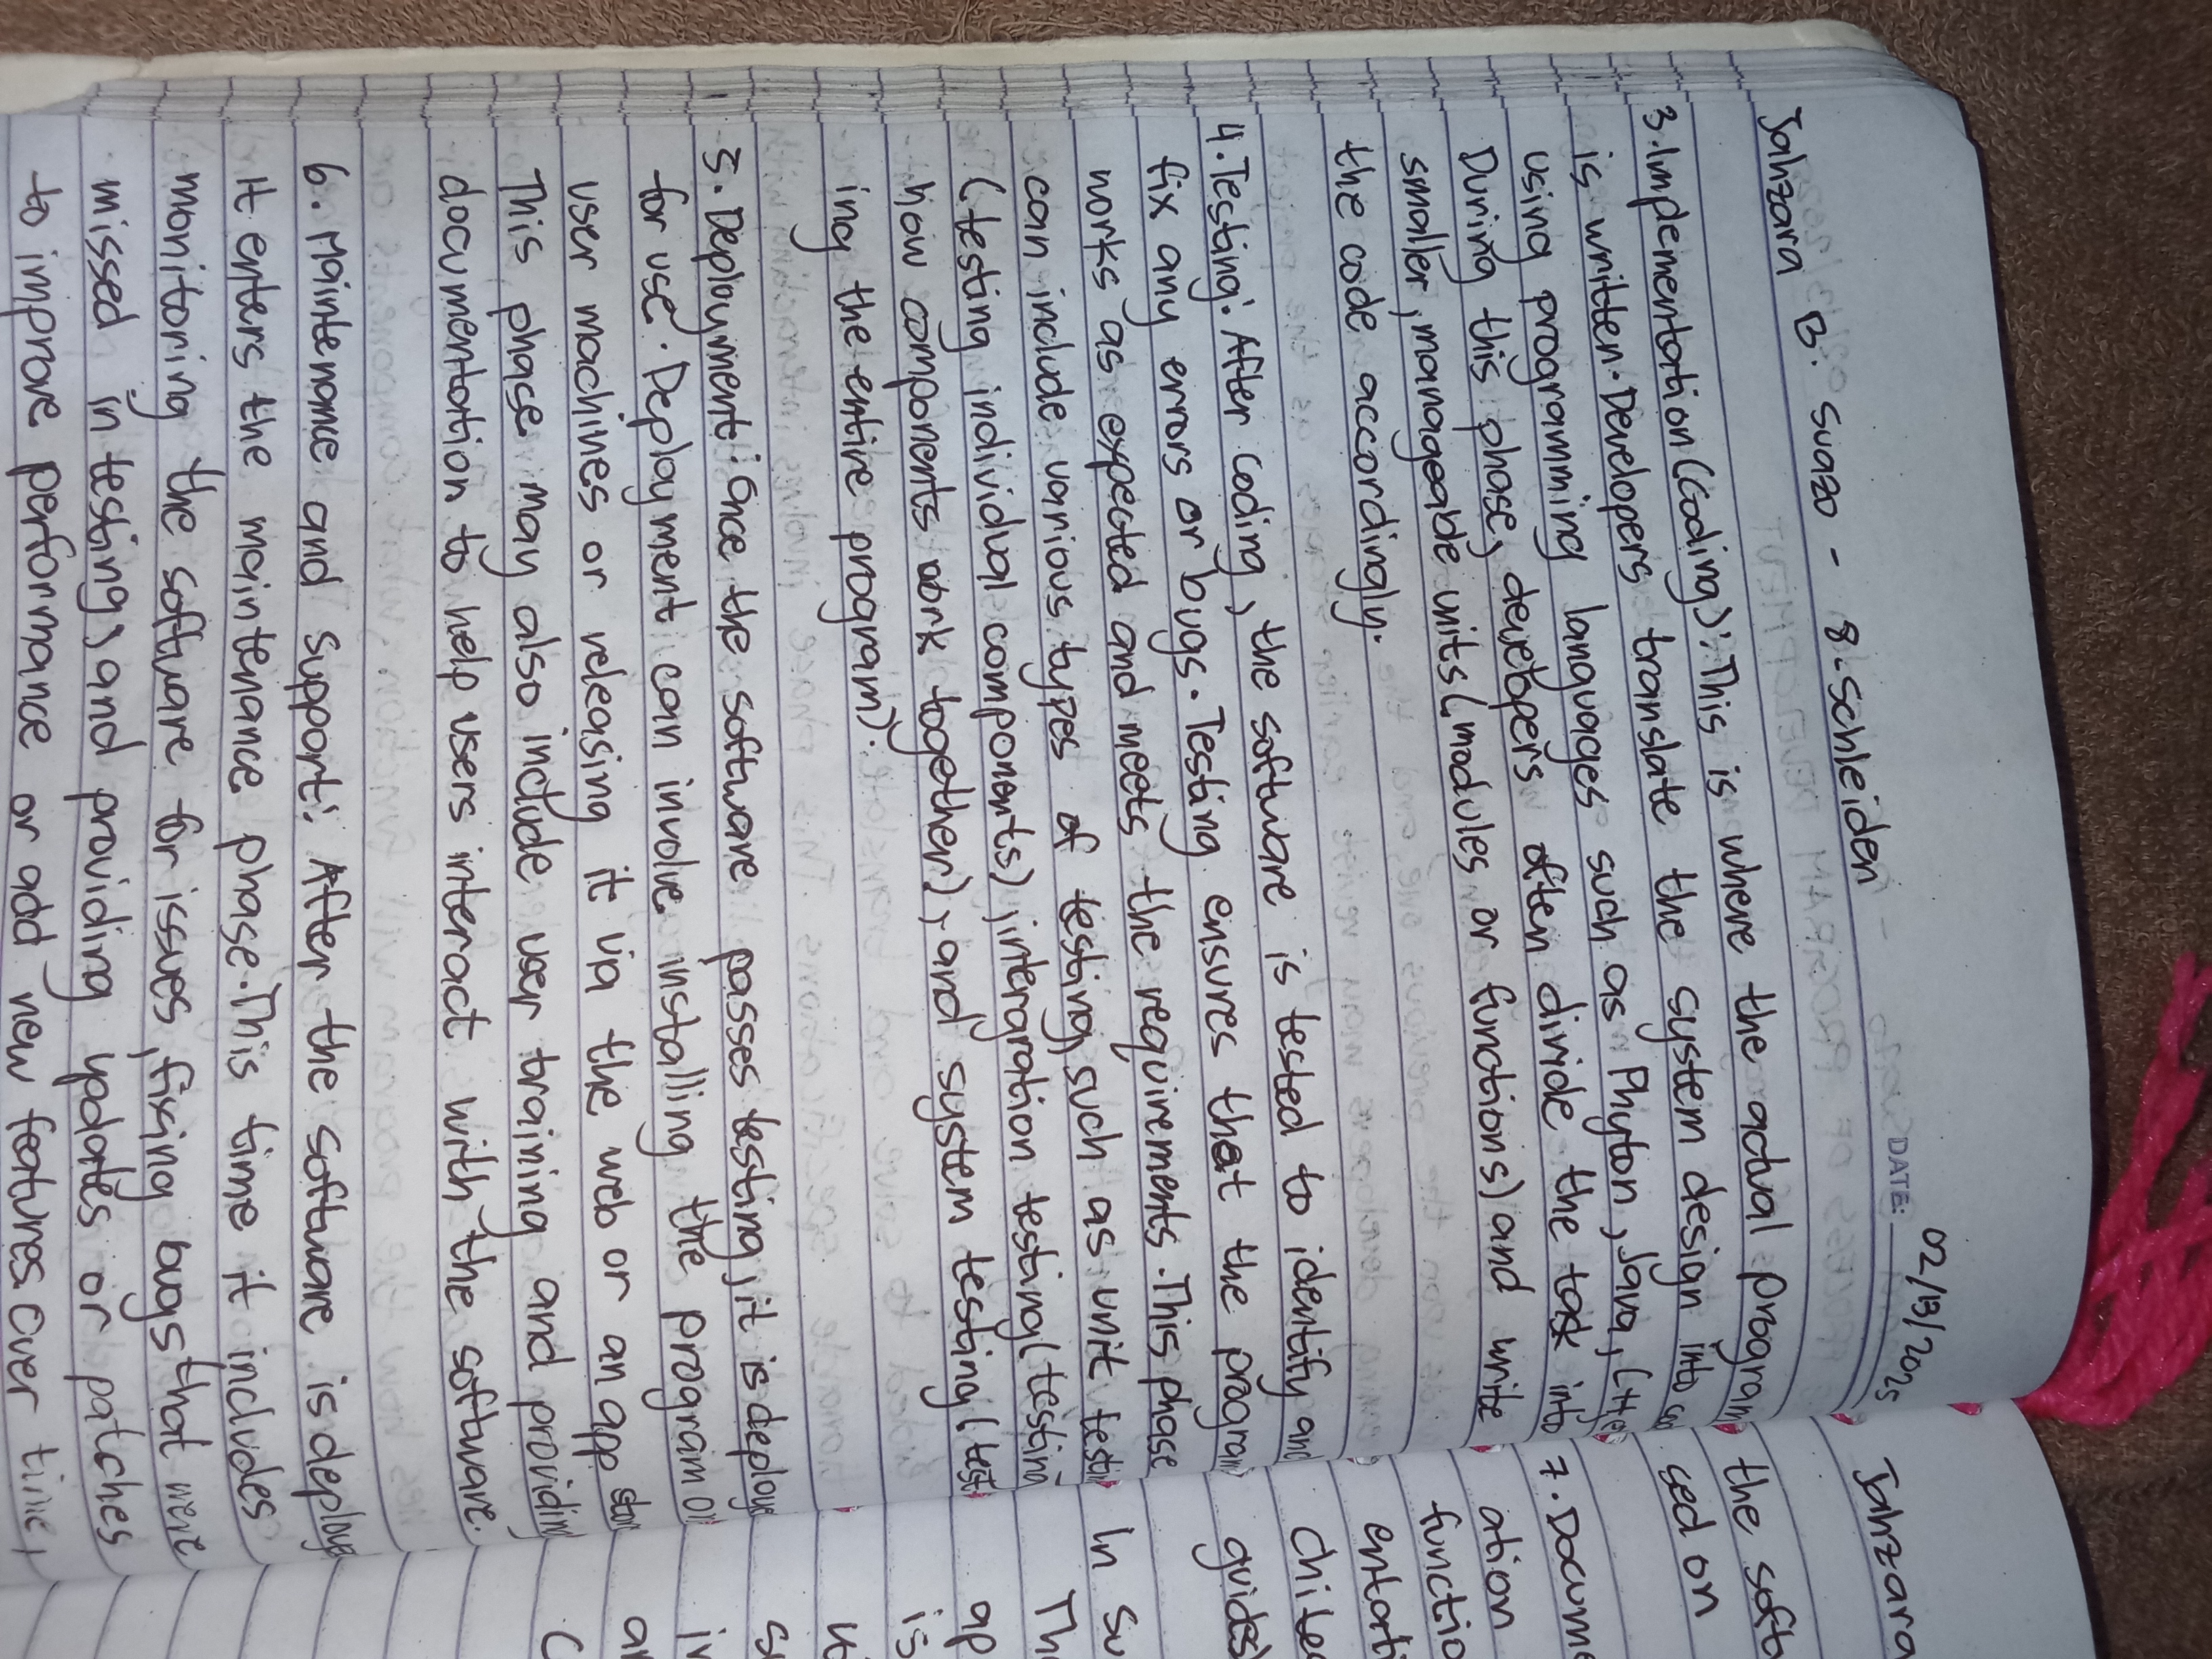 DATE: 02/13/2025
Jahzara B. Suazo - 8-Schleiden
3. Implementation (Coding): This is where the actual program
is written. Developers translate the system design into
using programming languages such as Phyton, Java, C++,
During this phase, developers often divide the task into
smaller, manageable units (modules or functions) and write
the code accordingly.
4. Testing: After coding, the software is tested to identify and
fix any errors or bugs. Testing ensures that the program
works as expected and meets the requirements. This phase
can include various types of testing, such as unit testin
(testing individual components), intergration testing (testing
how components work together), and system testing (test
ing the entire program).
5. Deployment: Once the software passes testing, it is deploye
for use. Deployment can involve installing the program on
user machines or releasing it via the web or an app stor
This phase may also include user training and providing
documentation to help users interact with the software.
6. Maintenance and Support: After the software is deploye
It enters the maintenance phase. This time it includes
monitoring the software for issues, fixing bugs that were
missed in testing, and providing updates or patches
to improve performance or add new features. Over time,
Jahzara
the soft
sed on
7. Docume
ation
functio
entati
chitec
guides
In Su
Th
ap
is